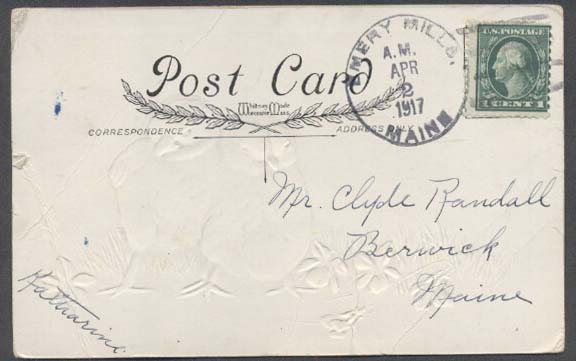 Post Card
Whitney Made
Worcester, Mass.
CORRESPONDENCE
ADDRESS ONLY
EMERY MILLS,
A.M.
APR
2
1917
MAINE
U.S. POSTAGE
1 CENT 1
Mr. Clyde Randall
Berwick
Maine
Katharine